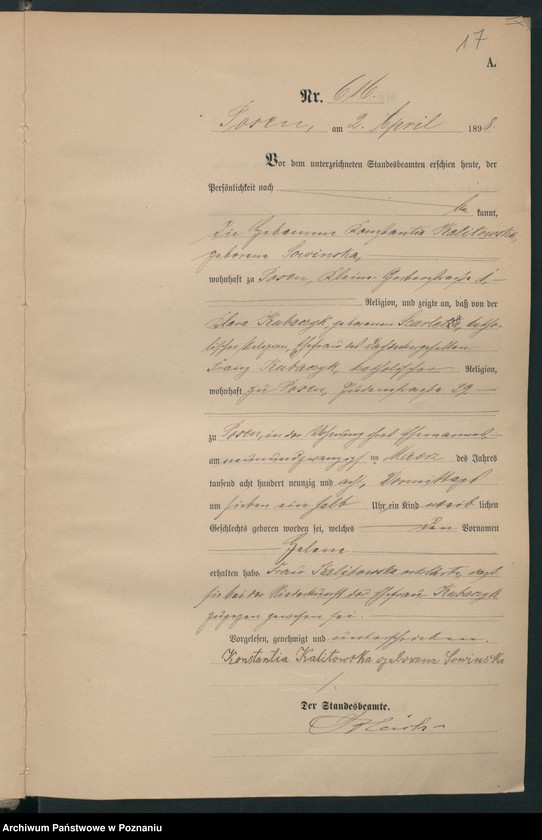 17
A.
Nr. 616.
Posen, am 2. April 1898.
Vor dem unterzeichneten Standesbeamten erschien heute, der
Persönlichkeit nach
be kannt,
die Hebamme Konstantia Kalitowska,
geborene Sowinska,
wohnhaft zu Posen, Kleine Gerberstraße
Religion, und zeigte an, daß von der
Clara Kubaczyk, geborenen katho-
lischer Religion, Ehefrau des
Franz Kubaczyk, katholischer Religion,
wohnhaft zu Posen, 29
zu Posen, in der Wohnung ihres Ehemannes
am neunundzwanzigsten März des Jahres
tausend acht hundert neunzig und acht, Vormittags
um sieben ein halb Uhr, ein Kind weib lichen
Geschlechts geboren worden sei, welches den Vornamen
Helene
erhalten habe. Frau Kalitowska erklärte, daß
sie bei der Niederkunft der Ehefrau Kubaczyk
zugegen gewesen sei.
Vorgelesen, genehmigt und unterschrieben.
Konstantia Kalitowska geborene Sowinska
Der Standesbeamte.
Archiwum Państwowe w Poznaniu